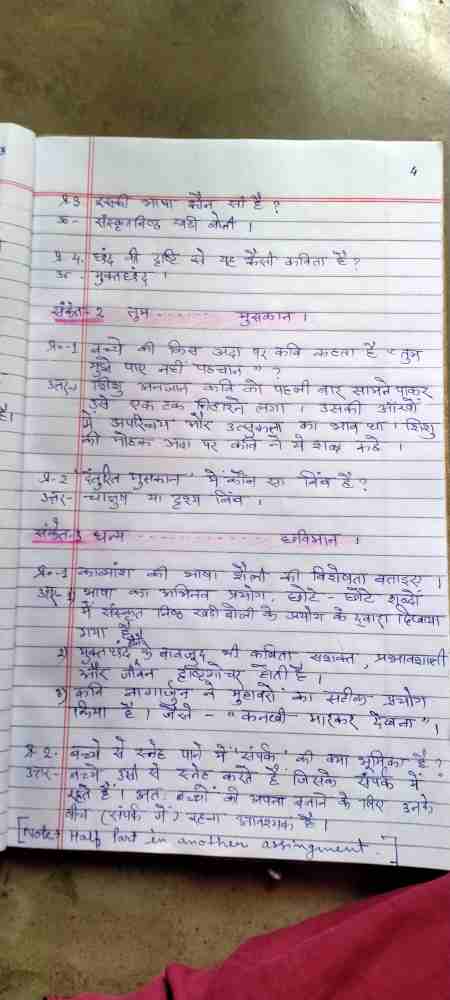 4
प्र.3 इसकी भाषा कौन सी है ?
उ०- संस्कृतनिष्ठ खड़ी बोली ।
प्र 4. छंद की दृष्टि से यह कैसी कविता है ?
उ० मुक्तछंद ।
संकेत-2 तुम ...... मुसकान ।
प्र०-1 बच्चे की किस अदा पर कवि कहता है "तुम
मुझे पाए नहीं पहचान" ?
उत्तर- शिशु अनजान कवि को पहली बार सामने पाकर
उसे एक टक निहारने लगा । उसकी आँखों
में अपरिचय और उत्सुकता का भाव था । शिशु
की मोहक अदा पर कवि ने ये शब्द कहे ।
प्र-2 'दंतुरित मुसकान' में कौन सा बिंब है ?
उत्तर- चाक्षुष या दृश्य बिंब ।
संकेत-3 धन्य .................. छविमान ।
प्र०-1 काव्यांश की भाषा शैली की विशेषता बताइए ।
उत्तर- 1) भाषा का अभिनव प्रयोग. छोटे - छोटे शब्दों
में संस्कृत निष्ठ खड़ी बोली के प्रयोग के द्वारा दिखाया
गया है।
2) मुक्तछंद के बावजूद भी कविता सशक्त, प्रभावशाली
और जीवन दृष्टिगोचर होती है ।
3) कवि नागार्जुन ने मुहावरों का सटीक प्रयोग
किया है । जैसे - "कनखी मारकर देखना" ।
प्र 2- बच्चे से स्नेह पाने में 'संपर्क' की क्या भूमिका है ?
उत्तर- बच्चे उसी से स्नेह करते हैं जिसके संपर्क में
रहते हैं । अतः बच्चों को अपना बनाने के लिए उनके
बीच (संपर्क में) रहना आवश्यक है ।
[Note:- Half Part in another assingment.]